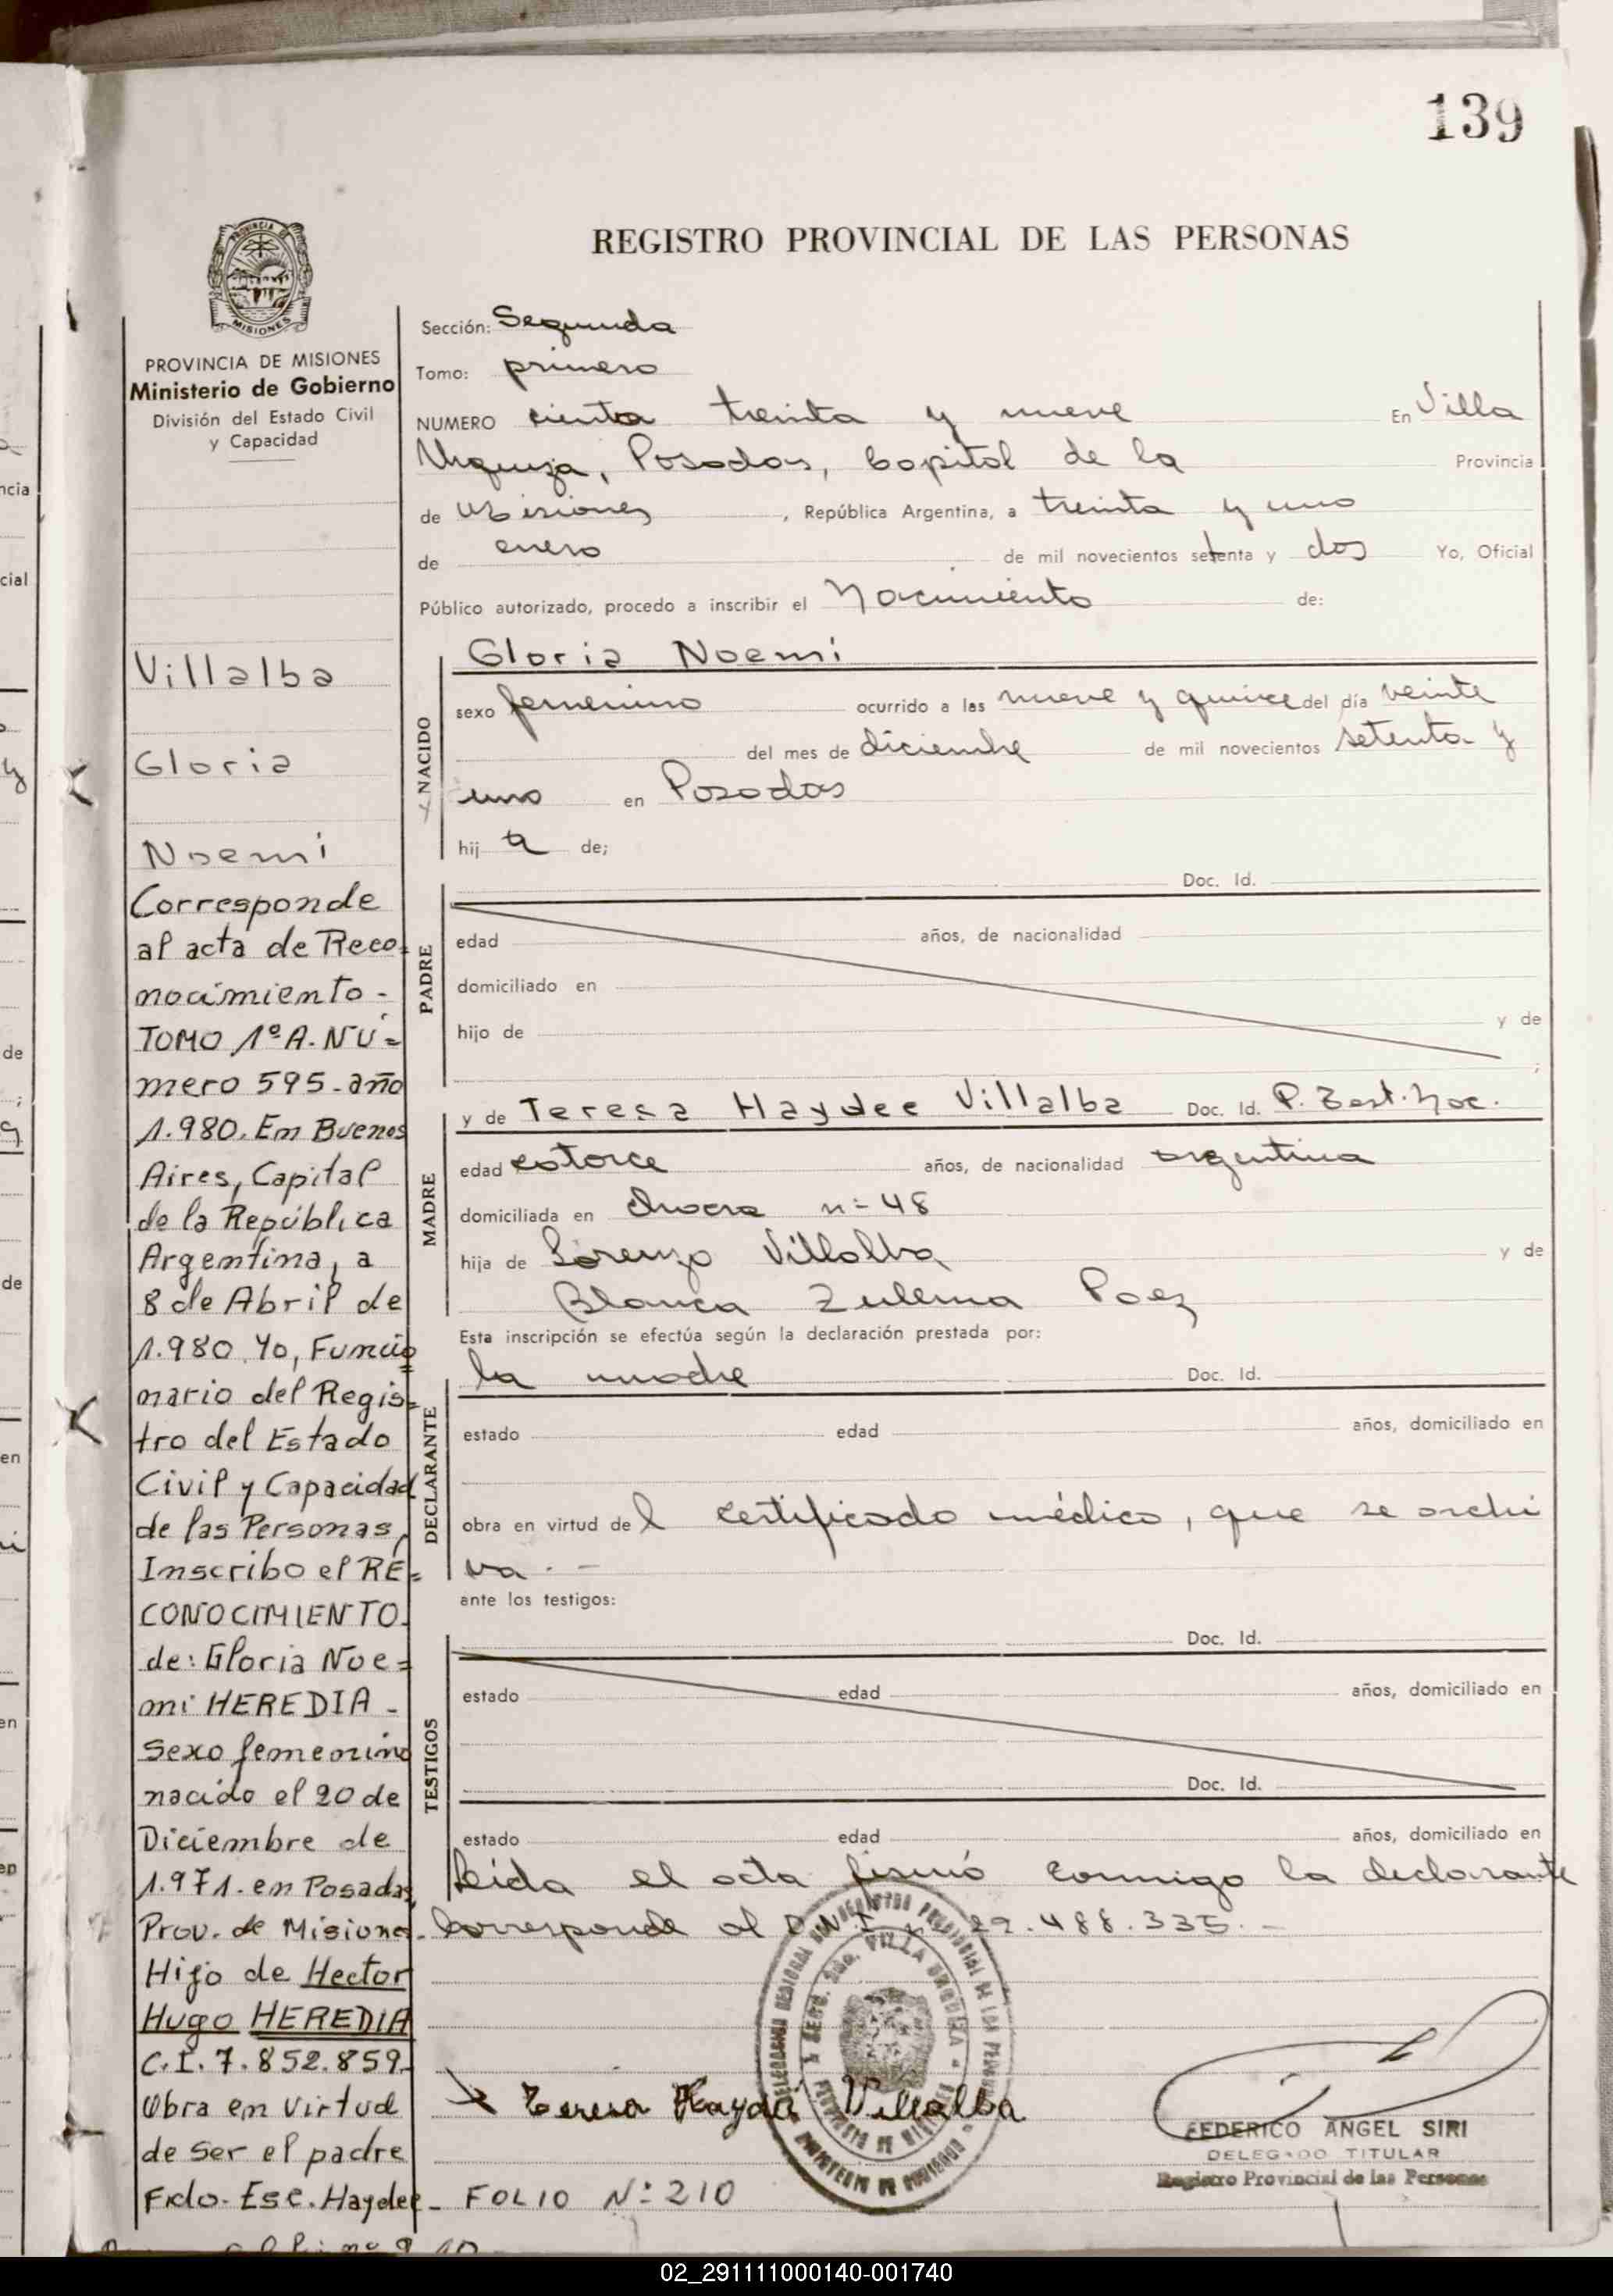 139
REGISTRO PROVINCIAL DE LAS PERSONAS
PROVINCIA DE MISIONES
Ministerio de Gobierno
División del Estado Civil
y Capacidad
Villalba
Gloria
Noemi
Corresponde
al acta de Reco=
nocimiento-
TOMO 1º A. NÚ=
mero 595-año
1.980. En Buenos
Aires, Capital
de la República
Argentina, a
8 de Abril de
1.980. Yo, Funcio=
nario del Regis=
tro del Estado
Civil y Capacidad
de las Personas,
Inscribo el RE=
CONOCIMIENTO.
de: Gloria Noe=
mi HEREDIA-
Sexo femenino
nacido el 20 de
Diciembre de
1.971. en Posadas,
Prov. de Misiones.
Hijo de Hector
Hugo HEREDIA
C.I. 7.852.859.
Obra en virtud
de ser el padre
Fdo. Ese. Haydee-
Sección: Segunda
Tomo: primero
NUMERO ciento treinta y nueve En Villa
Urquiza, Posadas, Capital de la Provincia
de Misiones, República Argentina, a treinta y uno
de enero de mil novecientos setenta y dos Yo, Oficial
Público autorizado, procedo a inscribir el Nacimiento de:
NACIDO
Gloria Noemi
sexo femenino ocurrido a las nueve y quince del día veinte
del mes de diciembre de mil novecientos setenta y
uno en Posadas
hij a de;
PADRE
Doc. Id.
edad años, de nacionalidad
domiciliado en
hijo de y de
;
MADRE
y de Teresa Haydee Villalba Doc. Id. P. Nac.
edad catorce años, de nacionalidad argentina
domiciliada en chacra nº 48
hija de Lorenzo Villalba y de
Blanca Zulema Paez
Esta inscripción se efectúa según la declaración prestada por:
DECLARANTE
la madre Doc. Id.
estado edad años, domiciliado en
obra en virtud del certificado médico, que se archi
va.-
ante los testigos:
TESTIGOS
Doc. Id.
estado edad años, domiciliado en
Doc. Id.
estado edad años, domiciliado en
Leída el acta firmó conmigo la declarante
Corresponde al D.N.I. 22.488.335.-
Teresa Haydee Villalba
FEDERICO ANGEL SIRI
DELEGADO TITULAR
Registro Provincial de las Personas
FOLIO Nº 210
02_291111000140-001740